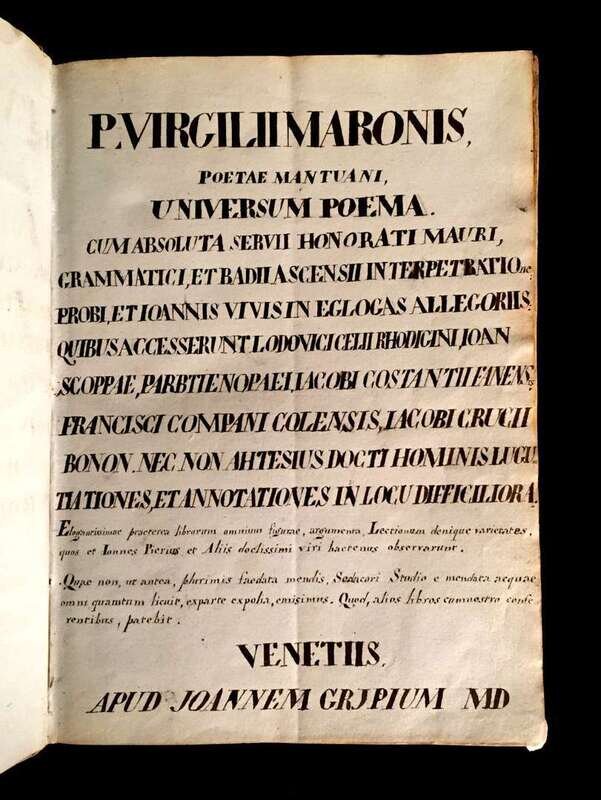 P. VIRGILII MARONIS,
POETAE MANTUANI,
UNIVERSUM POEMA.
CUM ABSOLUTA SERVII HONORATI MAURI,
GRAMMATICI, ET BADII ASCENSII INTERPETRATIONE
PROBI, ET IOANNIS VIVIS IN EGLOGAS ALLEGORIIS.
QUIBUS ACCESSERUNT LODOVICI CELII RHODIGINI, IOAN
SCOPPAE, PARBTIENOPAEI, IACOBI COSTANTII FANENS,
FRANCISCI COMPANI COLENSIS, IACOBI CRUCII
BONON. NEC NON AHTESIUS DOCTI HOMINIS LUCU
TIATIONES, ET ANNOTATIONES IN LOCU DIFFICILIORA.
Elegantissimae praeterea librorum omnium figurae, argumenta, Lectionum denique varietates,
quos et Ionnes Pierius et Aliis doctissimi viri hactenus observarunt.
Quae non, ut antea, plurimis faedata mendis, Sedacori Studio e mendata aequae
omni quamtum licuit, exparte expolia, emisimus. Quod, alios libros cumnostro confe
rentibus, patebit.
VENETIIS,
APUD JOANNEM GRIPIUM MD